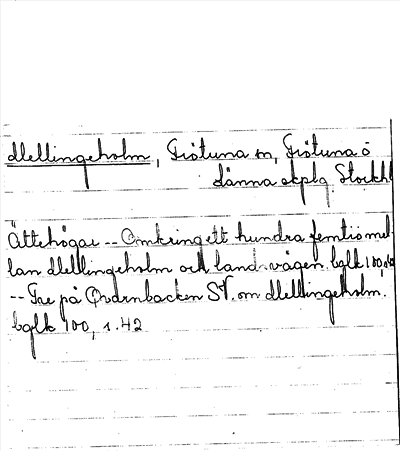 Mellingeholm, Frötuna sn, Frötuna o
Länna skplg Stockh
Ättehögar -- Omkring ett hundra femtio mel-
lan Mellingeholm och landsvägen. bglk 100,
-- Tre på Qvarnbacken SV. om Mellingeholm.
bglk 100, s. 42